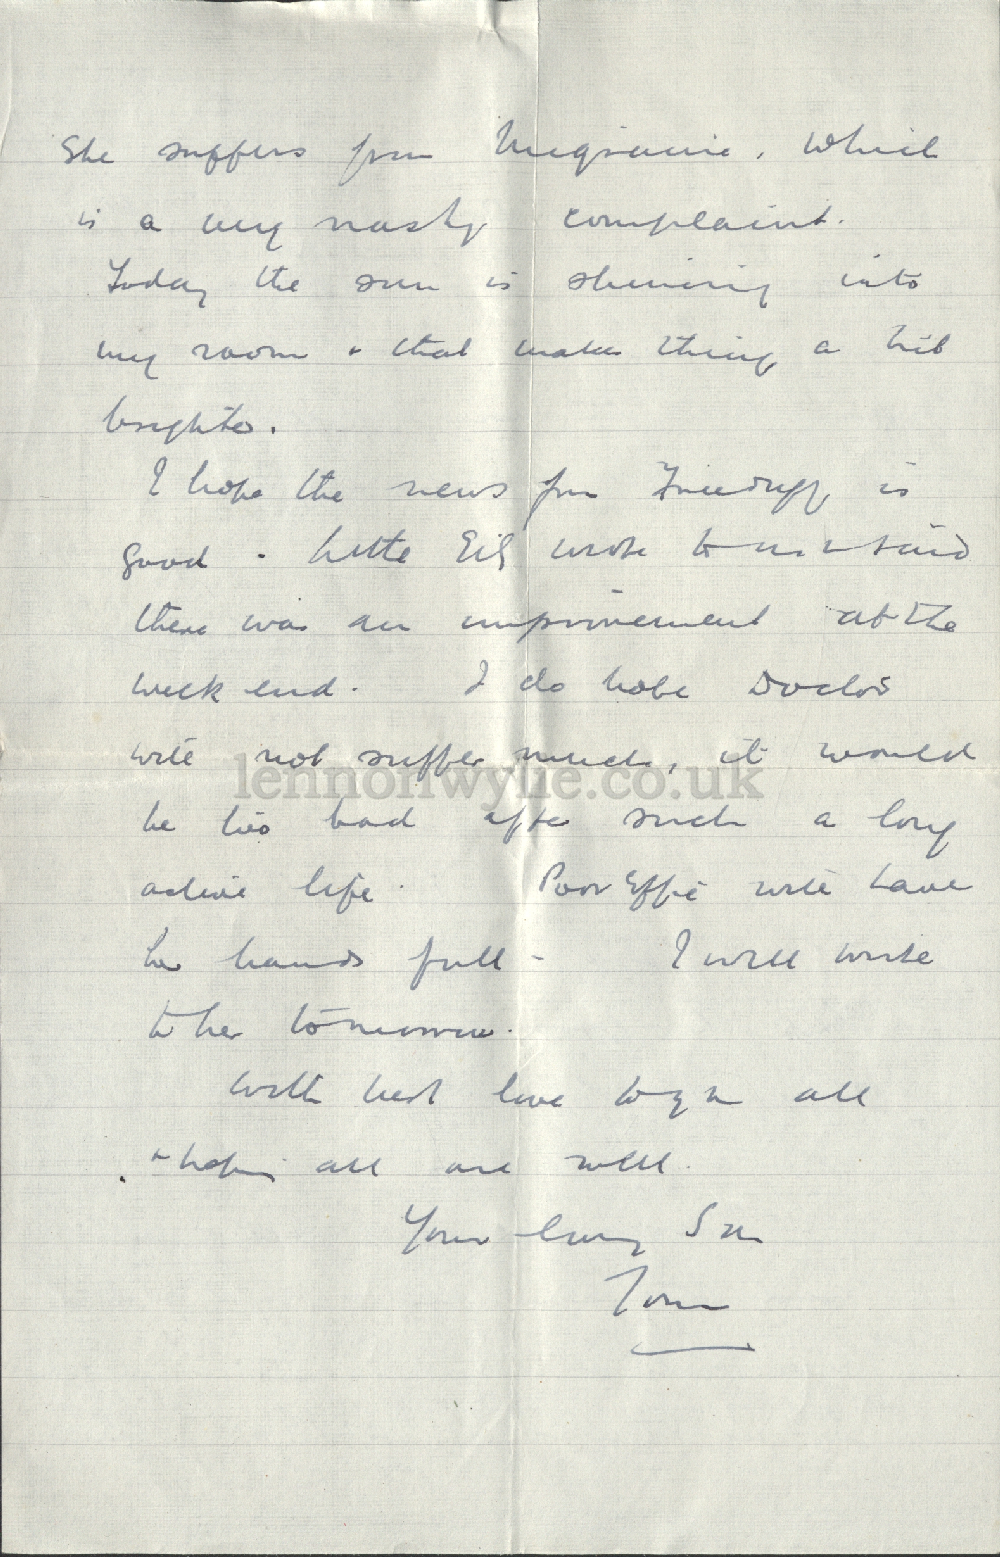 She suffers from Migraine, which
is a very nasty complaint.
Today the sun is shining into
my room & that makes things a bit
brighter.
I hope the news from is
good - Little Eil wrote to me & said
there was an improvement at the
week end. I do hope Doctor
will not suffer much, it would
be too bad after such a long
active life. Poor Effie will have
her hands full - I will write
to her tomorrow.
With best love to you all
& hoping all are well.
Your loving Son
Tom
lennonwylie.co.uk